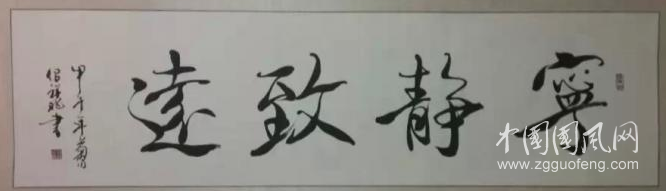 寧靜致遠
甲午年
書
中国国风网
www.zgguofeng.com